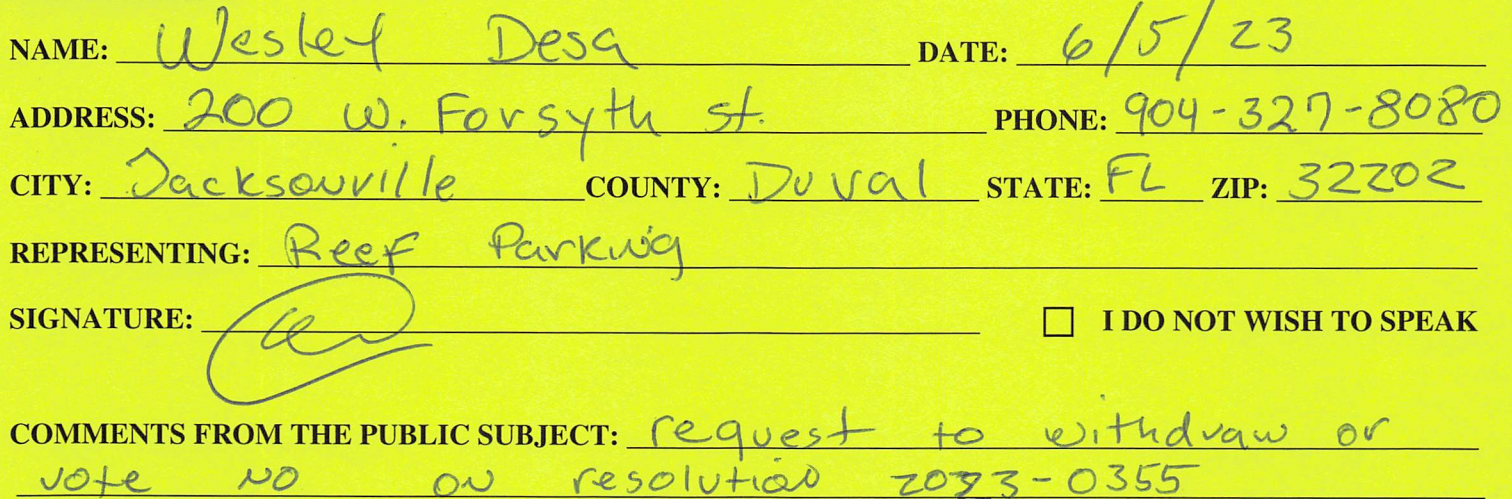 NAME: Wesley Desa DATE: 6/5/23
ADDRESS: 200 W. Forsyth st. PHONE: 904-327-8080
CITY: Jacksonville COUNTY: Duval STATE: FL ZIP: 32202
REPRESENTING: Reef Parking
SIGNATURE: I DO NOT WISH TO SPEAK
COMMENTS FROM THE PUBLIC SUBJECT: request to withdraw or
vote NO ON resolution 2023-0355